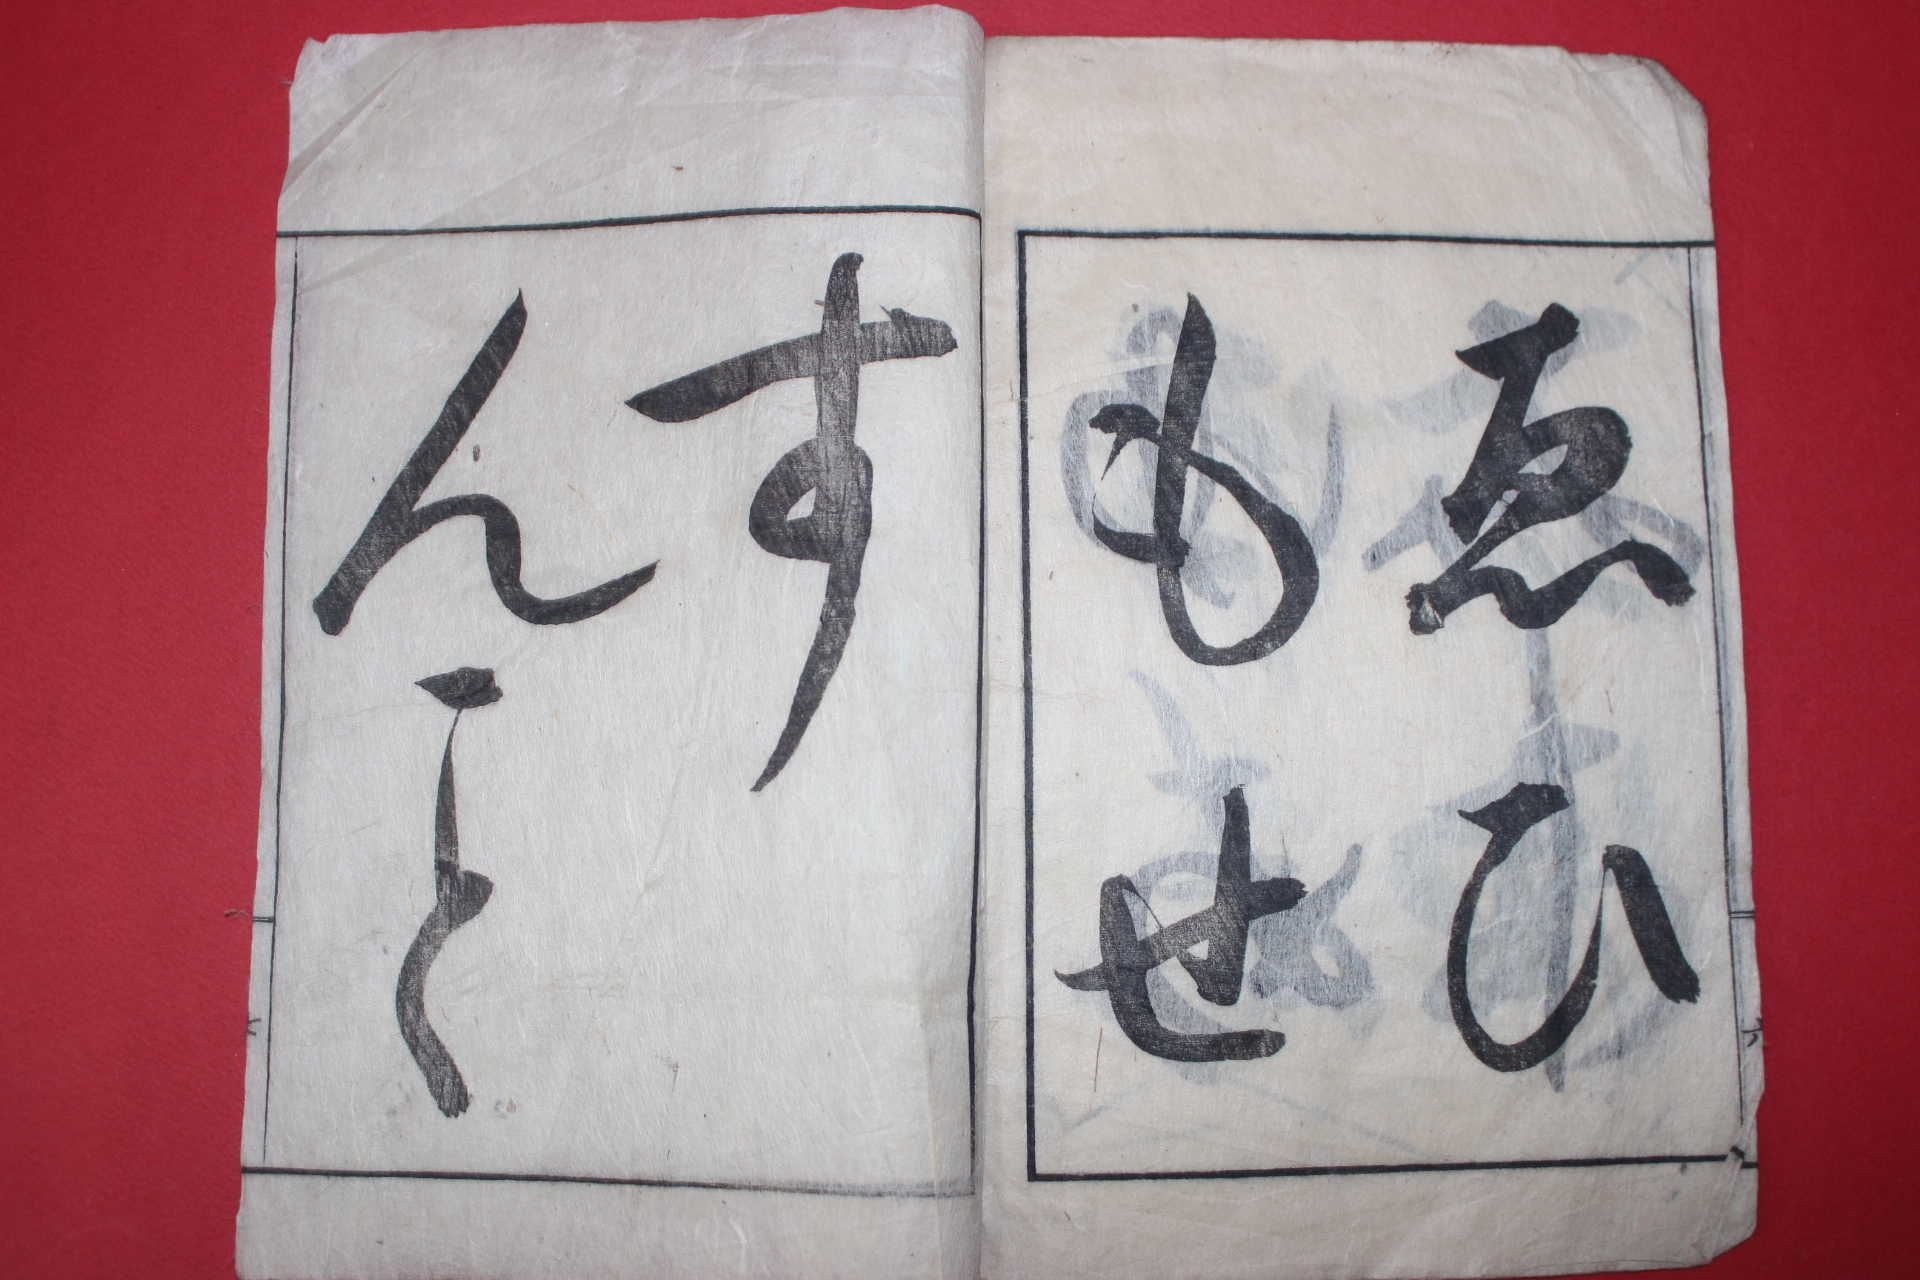 ゑひ
もせ
す
ん